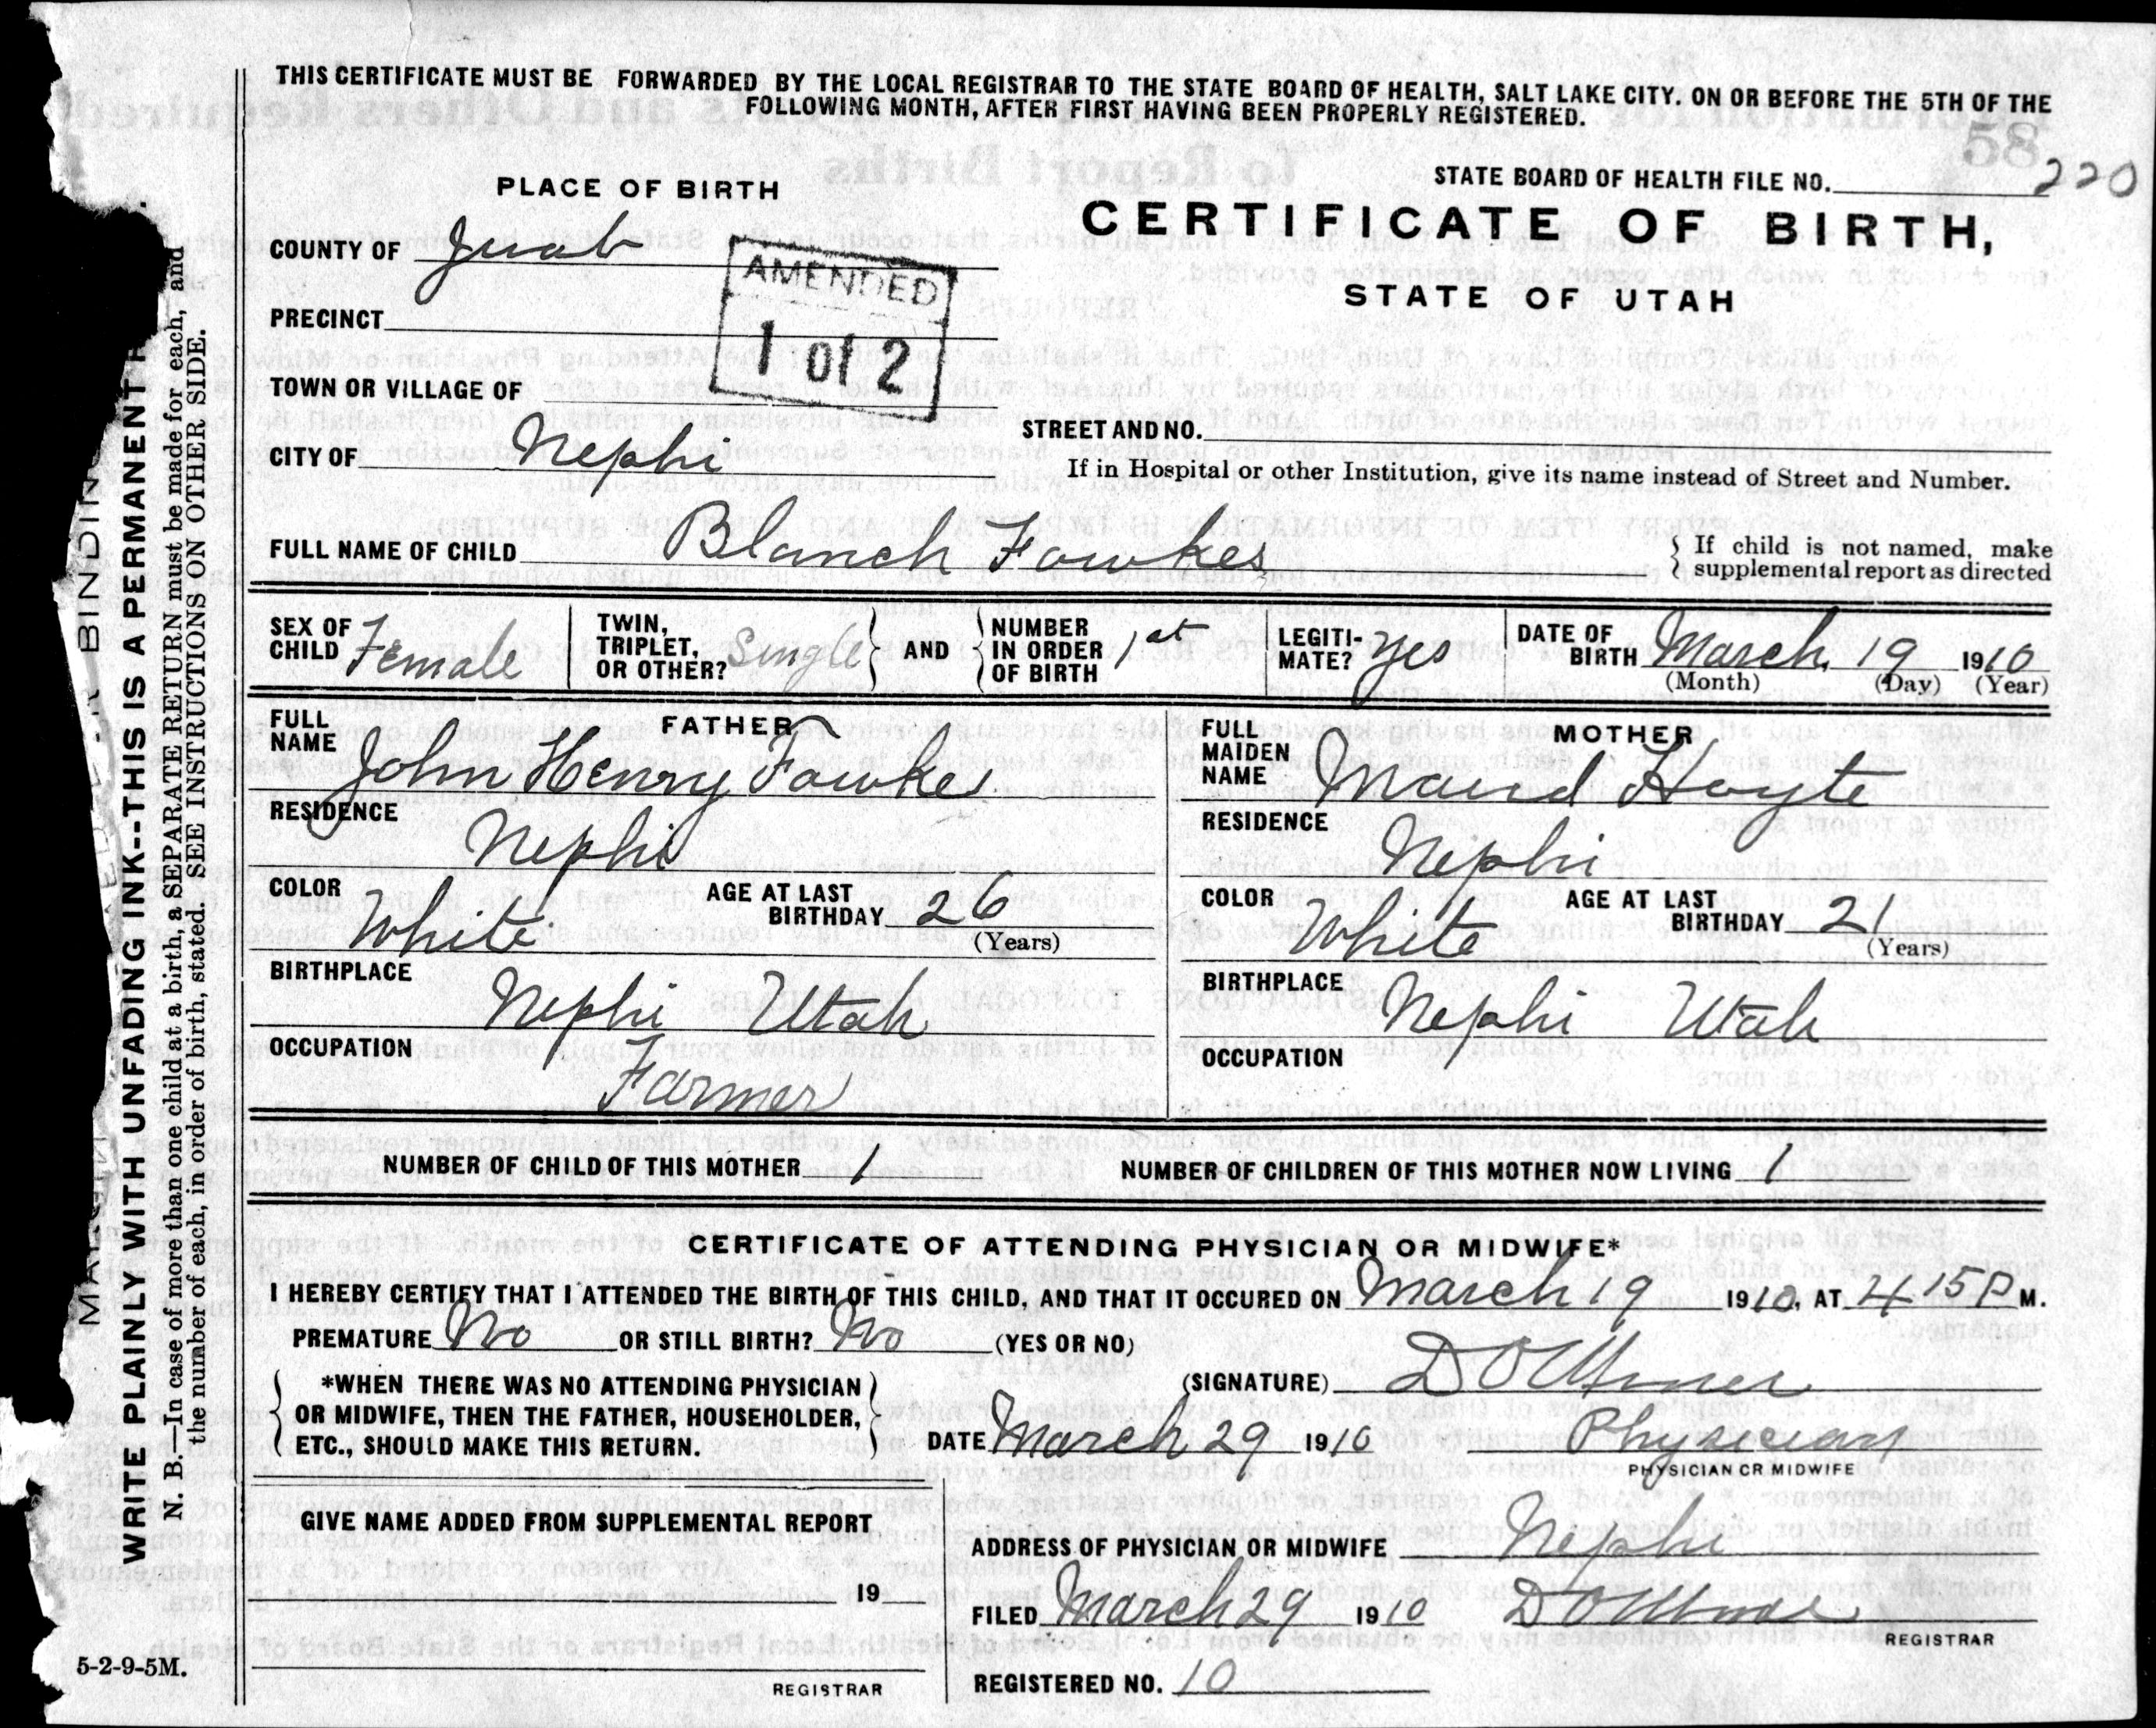 THIS CERTIFICATE MUST BE FORWARDED BY THE LOCAL REGISTRAR TO THE STATE BOARD OF HEALTH, SALT LAKE CITY. ON OR BEFORE THE 5TH OF THE
FOLLOWING MONTH, AFTER FIRST HAVING BEEN PROPERLY REGISTERED.
58
PLACE OF BIRTH
STATE BOARD OF HEALTH FILE NO. 220
CERTIFICATE OF BIRTH,
STATE OF UTAH
COUNTY OF Juab
AMENDED
1 of 2
PRECINCT
TOWN OR VILLAGE OF
STREET AND NO.
CITY OF Nephi
If in Hospital or other Institution, give its name instead of Street and Number.
FULL NAME OF CHILD Blanch Fowkes
If child is not named, make
supplemental report as directed
SEX OF CHILD Female
TWIN, TRIPLET, OR OTHER? Single
AND
NUMBER IN ORDER OF BIRTH 1st
LEGITI-MATE? Yes
DATE OF BIRTH March 19 1910
(Month) (Day) (Year)
FATHER
FULL NAME John Henry Fowkes
RESIDENCE Nephi
COLOR White
AGE AT LAST BIRTHDAY 26
(Years)
BIRTHPLACE Nephi Utah
OCCUPATION Farmer
MOTHER
FULL MAIDEN NAME Maud Hoyte
RESIDENCE Nephi
COLOR White
AGE AT LAST BIRTHDAY 21
(Years)
BIRTHPLACE Nephi Utah
OCCUPATION
NUMBER OF CHILD OF THIS MOTHER 1
NUMBER OF CHILDREN OF THIS MOTHER NOW LIVING 1
CERTIFICATE OF ATTENDING PHYSICIAN OR MIDWIFE*
I HEREBY CERTIFY THAT I ATTENDED THE BIRTH OF THIS CHILD, AND THAT IT OCCURED ON March 19 1910, AT 4 15 P M.
PREMATURE No OR STILL BIRTH? No (YES OR NO)
*WHEN THERE WAS NO ATTENDING PHYSICIAN
OR MIDWIFE, THEN THE FATHER, HOUSEHOLDER,
ETC., SHOULD MAKE THIS RETURN.
(SIGNATURE)
DATE March 29 1910
Physician
PHYSICIAN OR MIDWIFE
GIVE NAME ADDED FROM SUPPLEMENTAL REPORT
19
REGISTRAR
ADDRESS OF PHYSICIAN OR MIDWIFE Nephi
FILED March 29 1910
REGISTRAR
REGISTERED NO. 10
5-2-9-5M.
BINDIN
WRITE PLAINLY WITH UNFADING INK--THIS IS A PERMANENT
N. B.—In case of more than one child at a birth, a SEPARATE RETURN must be made for each, and
the number of each, in order of birth, stated. SEE INSTRUCTIONS ON OTHER SIDE.